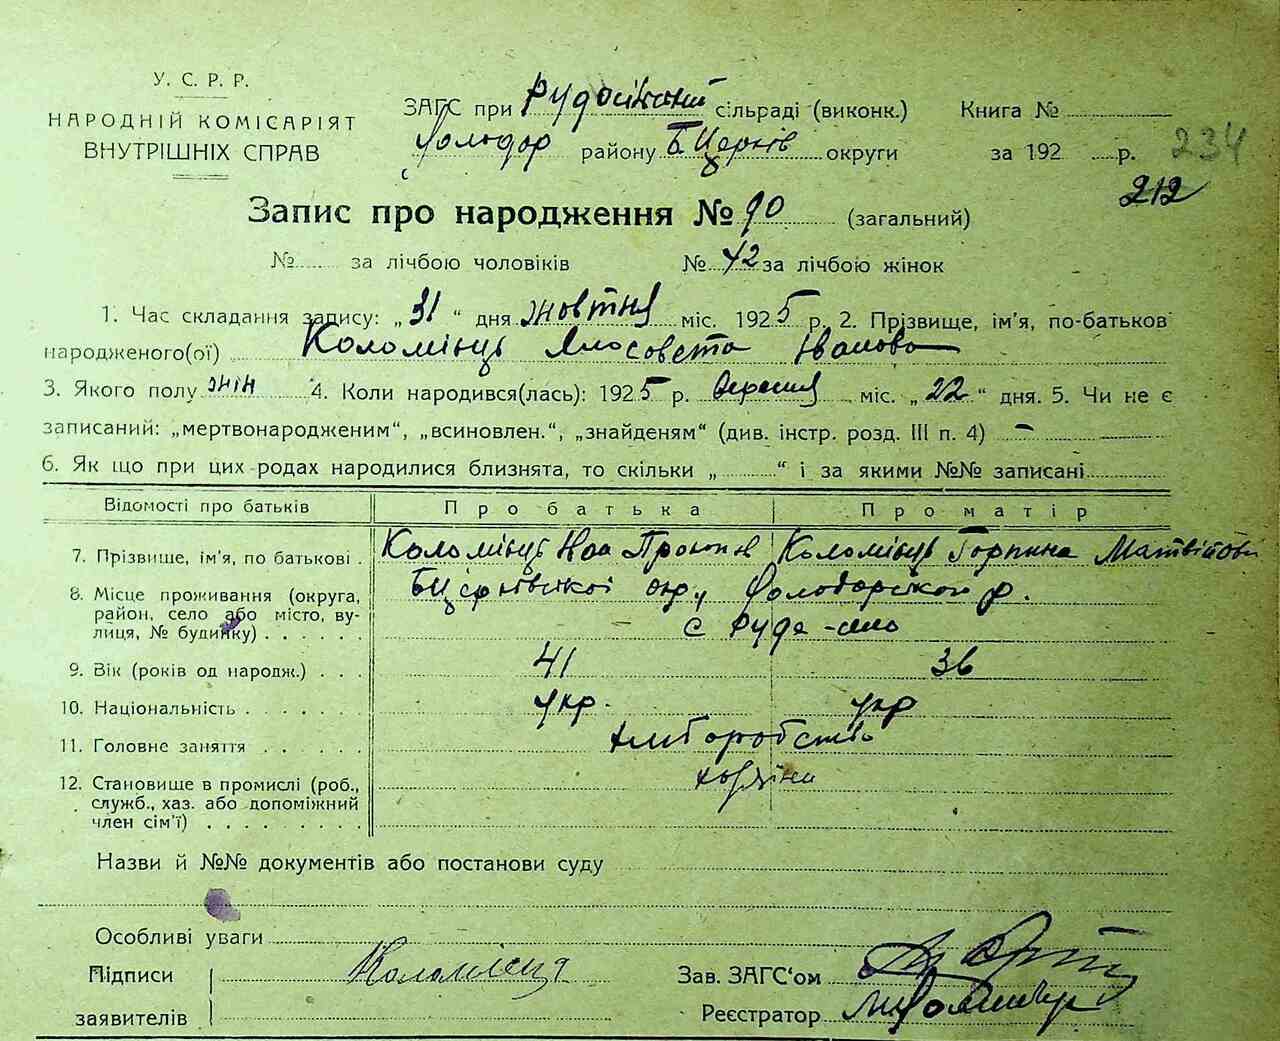 У. С. Р. Р.
НАРОДНІЙ КОМІСАРІЯТ
ВНУТРІШНІХ СПРАВ
ЗАГС при Рудосільский сільраді (виконк.) Книга №
Володар району БЦерків округи за 192 р. 234
212
Запис про народження № 90 (загальний)
№ за лічбою чоловіків № 42 за лічбою жінок
1. Час складання запису: „31“ дня жовтня міс. 1925 р. 2. Прізвище, ім'я, по-батьков
народженого(ої) Коломієць Ялосовета Іванова
3. Якого полу жін 4. Коли народився(лась): 1925 р. Вересня міс. „22“ дня. 5. Чи не є
записаний: „мертвонародженим“, „всиновлен.“, „знайденям“ (див. інстр. розд. III п. 4) –
6. Як що при цих родах народилися близнята, то скільки „ “ і за якими №№ записані
Відомості про батьків Про батька Про матір
7. Прізвище, ім'я, по батькові . Коломієць Іван Коломієць Горпина Матвійові
8. Місце проживання (округа, район, село або місто, вулиця, № будинку) . . . . . . БЦерківської окр. Володарського р.
с Руде-село
9. Вік (років од народж.) . . . 41 36
10. Національність . . . . . . укр. укр
11. Головне заняття . . . . . хліборобство
12. Становище в промислі (роб., служб., хаз. або допоміжний член сім'ї) . . . . . . . . хазяїни
Назви й №№ документів або постанови суду
Особливі уваги
Підписи Коломієць Зав. ЗАГС‘ом
заявителів Реєстратор